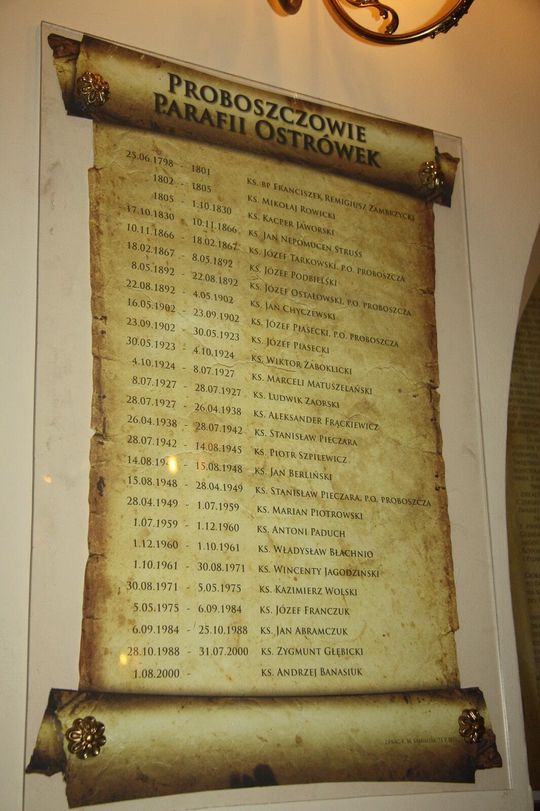 Proboszczowie
Parafii Ostrówek
25.06.1798 - 1801 Ks. bp Franciszek Remigiusz Zambrzycki
1802 - 1805 Ks. Mikołaj Rowicki
1805 - 1.10.1830 Ks. Kacper Jaworski
17.10.1830 - 10.11.1866 Ks. Jan Nepomucen Struss
10.11.1866 - 18.02.1867 Ks. Józef Tarkowski, p.o. proboszcza
18.02.1867 - 8.05.1892 Ks. Józef Podbielski
8.05.1892 - 22.08.1892 Ks. Józef Ostałowski, p.o. proboszcza
22.08.1892 - 4.05.1902 Ks. Jan Chyczewski
16.05.1902 - 23.09.1902 Ks. Józef Piasecki, p.o. proboszcza
23.09.1902 - 30.05.1923 Ks. Józef Piasecki
30.05.1923 - 4.10.1924 Ks. Wiktor Zaboklicki
4.10.1924 - 8.07.1927 Ks. Marceli Matuszelański
8.07.1927 - 28.07.1927 Ks. Ludwik Zaorski
28.07.1927 - 26.04.1938 Ks. Aleksander Frąckiewicz
26.04.1938 - 28.07.1942 Ks. Stanisław Pieczara
28.07.1942 - 14.08.1945 Ks. Piotr Szpilewicz
- 15.08.1948 Ks. Jan Berliński
15.08.1948 - 28.04.1949 Ks. Stanisław Pieczara, p.o. proboszcza
28.04.1949 - 1.07.1959 Ks. Marian Piotrowski
1.07.1959 - 1.12.1960 Ks. Antoni Paduch
1.12.1960 - 1.10.1961 Ks. Władysław Błachnio
1.10.1961 - 30.08.1971 Ks. Wincenty Jagodziński
30.08.1971 - 5.05.1975 Ks. Kazimierz Wolski
5.05.1975 - 6.09.1984 Ks. Józef Franczuk
6.09.1984 - 25.10.1988 Ks. Jan Abramczuk
28.10.1988 - 31.07.2000 Ks. Zygmunt Głębicki
1.08.2000 - Ks. Andrzej Banasiuk